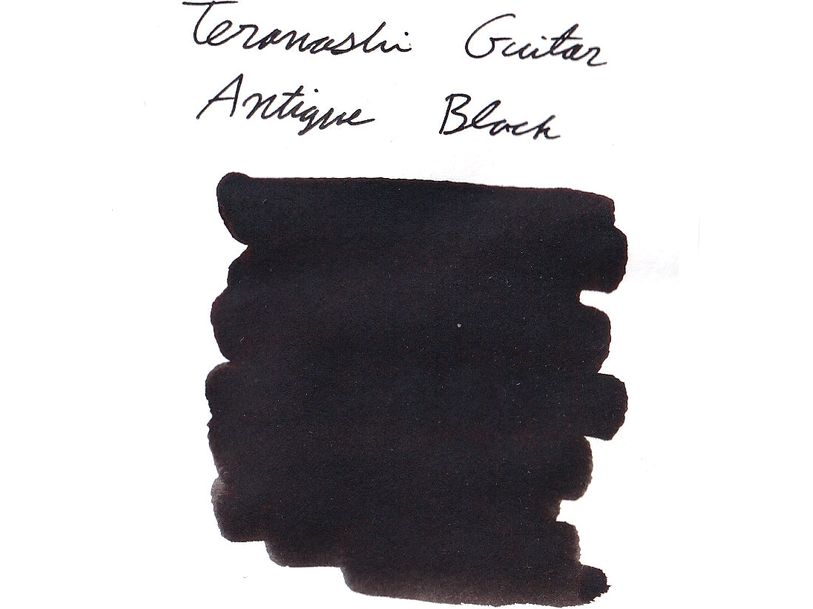 Teranashi Guitar
Antique Black